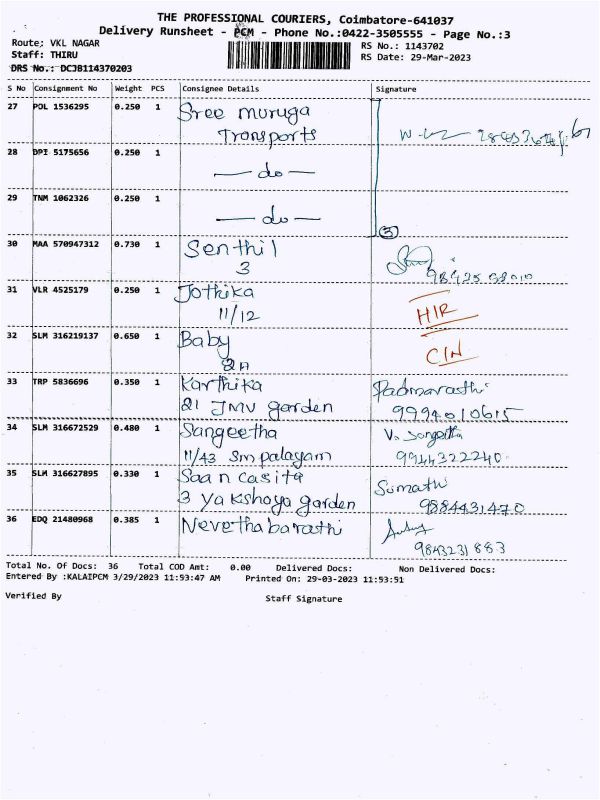 THE PROFESSIONAL COURIERS, Coimbatore-641037
Delivery Runsheet - PCM - Phone No.:0422-3505555 - Page No.:3
Route; VKL NAGAR
RS No.: 1143702
Staff: THIRU
RS Date: 29-Mar-2023
DRS No.: DCJB114370203
S No Consignment No Weight PCS Consignee Details Signature
27 POL 1536295 0.250 1 Sree muruga
Transports
28 DPI 5175656 0.250 1 — do —
29 TNM 1062326 0.250 1 — do —
3
30 MAA 570947312 0.730 1 Senthil
3
31 VLR 4525179 0.250 1 Jothika HIR
11/12
32 SLM 316219137 0.650 1 Baby CIN
33 TRP 5836696 0.350 1 Karthika Padmavasthi
21 JMV garden 9994010615
34 SLM 316672529 0.480 1 Sangeetha V. Sangeetha
11/43 Sm palayam 9944322240
35 SLM 316627895 0.330 1 Saan casita Sumathi
3 Yakshaya garden 9884431470
36 EDQ 21480968 0.385 1 Nevethabarathi
9843231883
Total No. Of Docs: 36 Total COD Amt: 0.00 Delivered Docs: Non Delivered Docs:
Entered By :KALAIPCM 3/29/2023 11:53:47 AM Printed On: 29-03-2023 11:53:51
Verified By Staff Signature